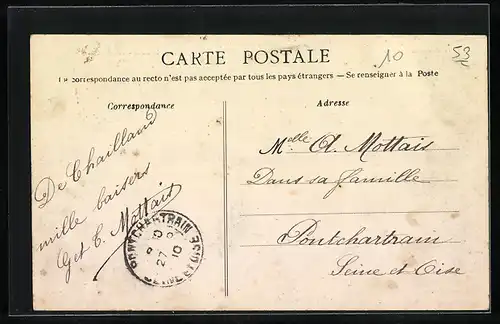 10
53
CARTE POSTALE
La correspondance au recto n'est pas acceptée par tous les pays étrangers — Se renseigner à la Poste
Correspondance
Adresse
De Chailland
mille baisers
G et C. Mottais
Melle A. Mottais
Dans sa famille
Pontchartrain
Seine et Oise
PONTCHARTRAIN
27
10
SEINE ET OISE